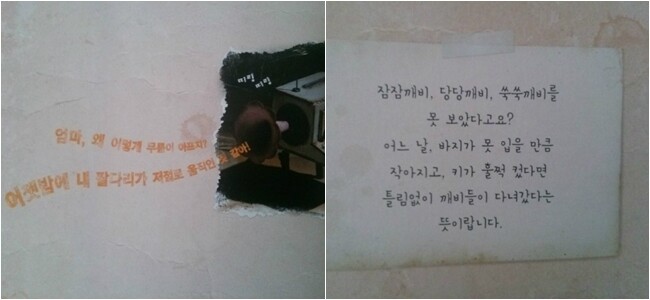 엄마, 왜 이렇게 무릎이 아프지?
어젯밤에 내 팔다리가 저절로 움직인 것 같아!
잠잠깨비, 당당깨비, 쑥쑥깨비를
못 보았다고요?
어느 날, 바지가 못 입을 만큼
작아지고, 키가 훌쩍 컸다면
틀림없이 깨비들이 다녀갔다는
뜻이랍니다.